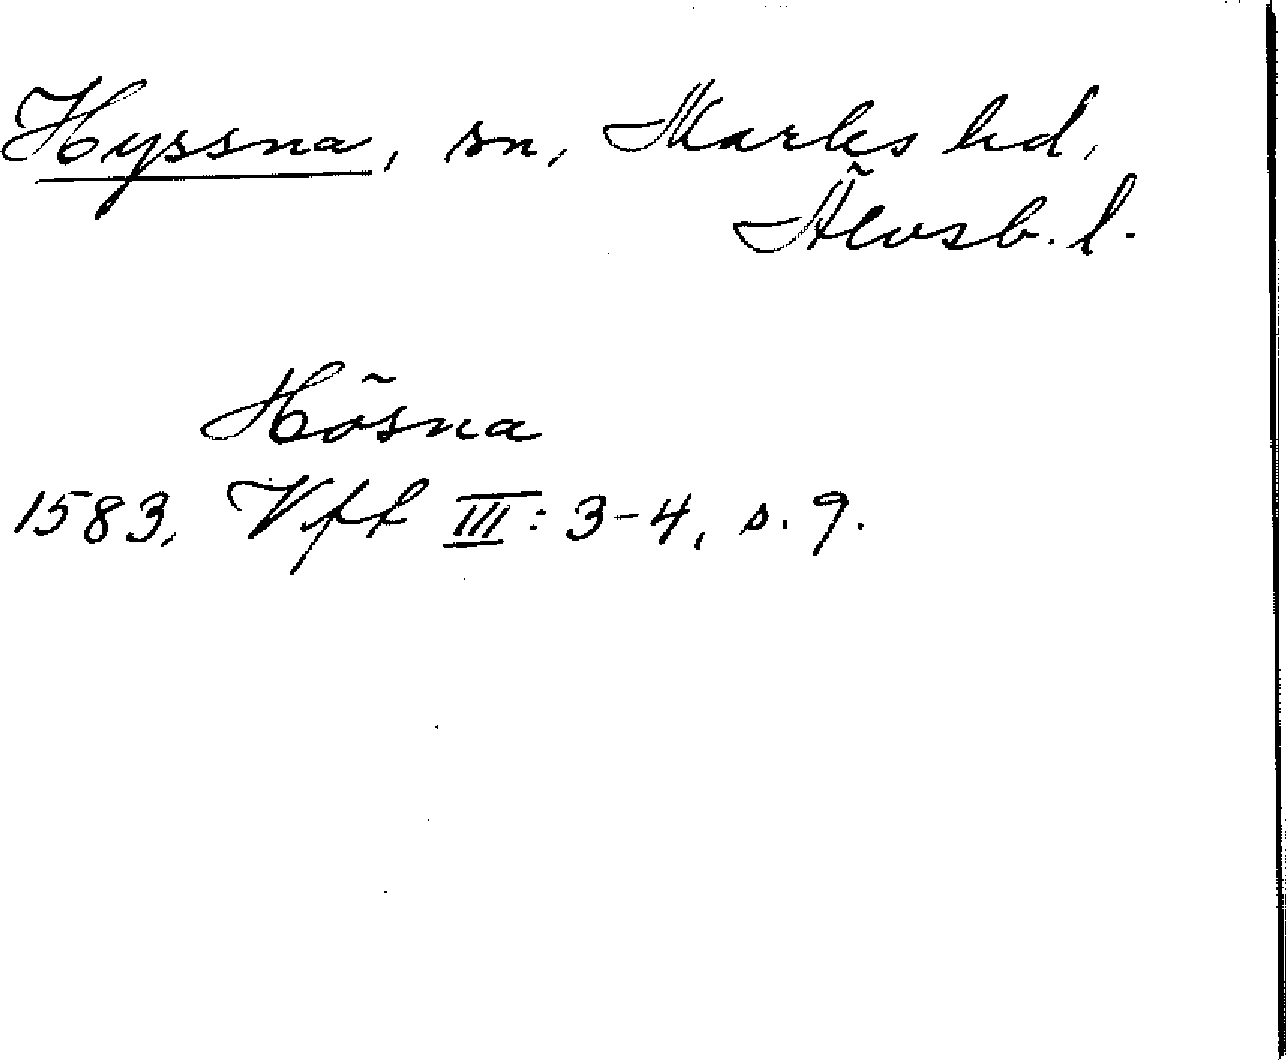 Hyssna, sn, Marks hd,
Älvsb. l.
Hösna
1583, Vfl III: 3-4, s. 9.